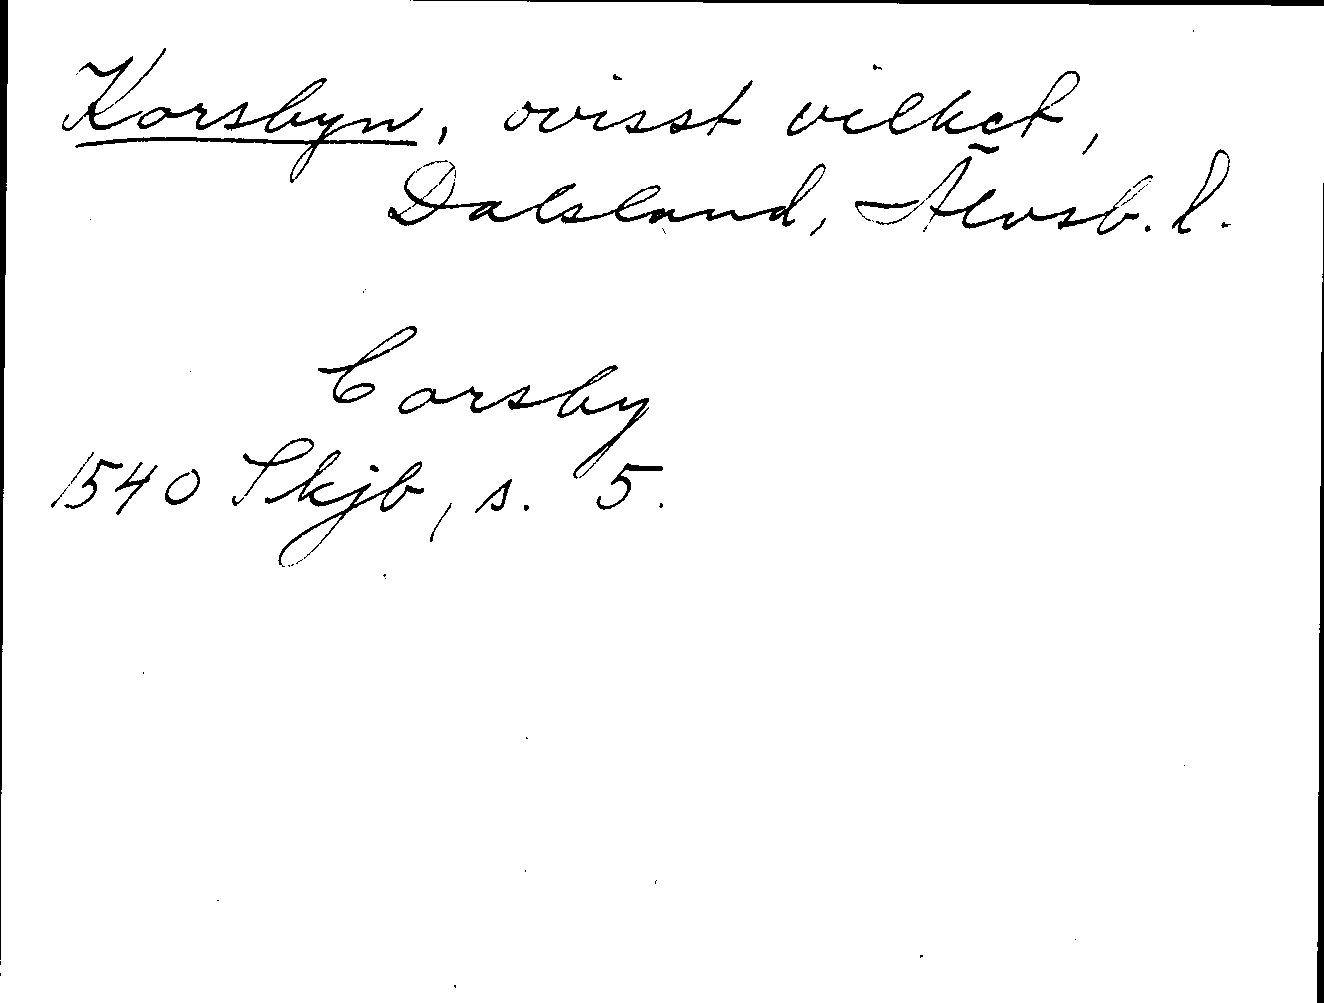 Korsbyn, ovisst vilket,
Dalsland, Älvsb. l.
Corsby
1540 Skjb, s. 5.